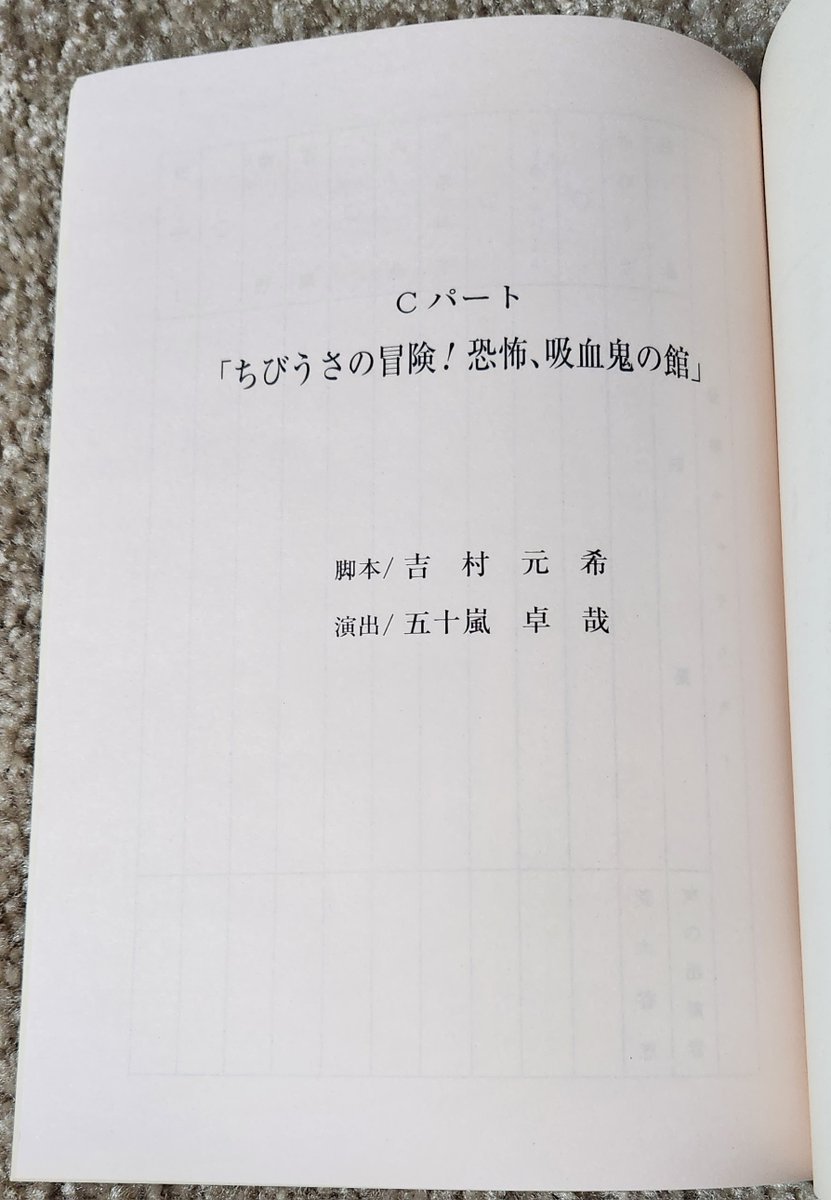 Cパート
「ちびうさの冒険！恐怖、吸血鬼の館」
脚本/吉村元希
演出/五十嵐卓哉